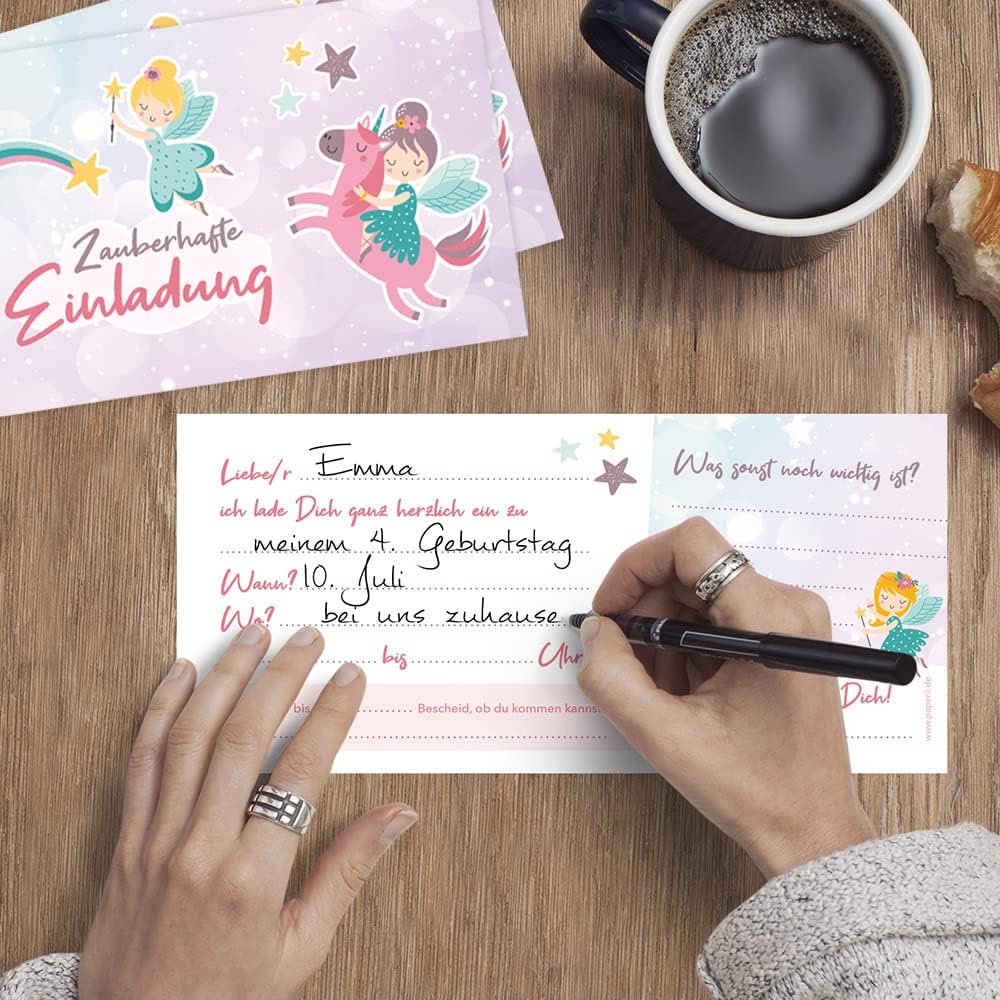 Zauberhafte
Einladung
Liebe/r Emma
ich lade Dich ganz herzlich ein zu
meinem 4. Geburtstag
Wann? 10. Juli
Wo? bei uns zuhause
bis Uhr
bis Bescheid, ob du kommen kannst
Was sonst noch wichtig ist?
Dich!
www.paperii.de